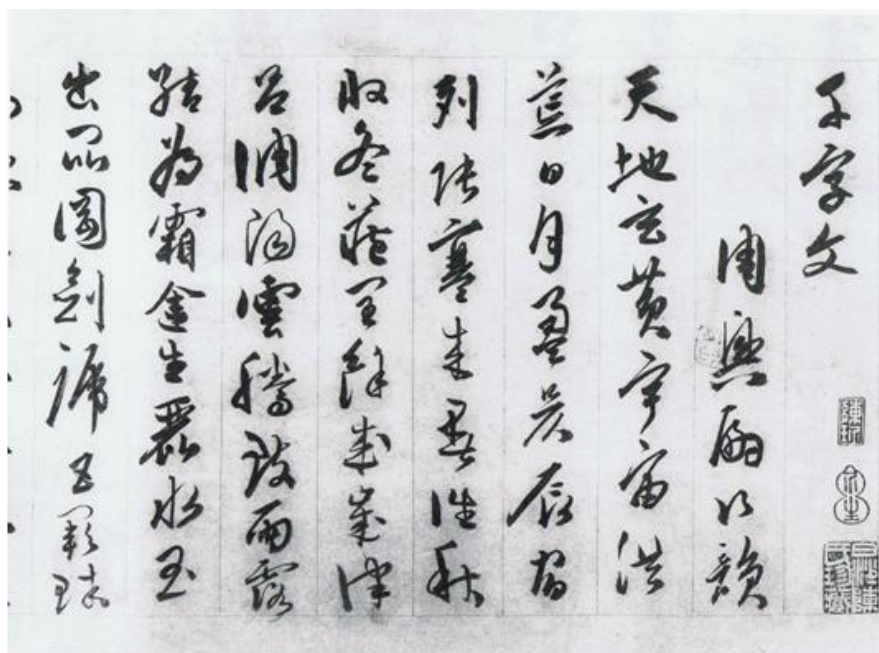 千字文
周興嗣次韻
天地玄黃宇宙洪
荒日月盈昃辰宿
列張寒來暑往秋
收冬藏閏餘成歲律
呂調陽雲騰致雨露
結為霜金生麗水玉
出崑岡劍號巨闕珠